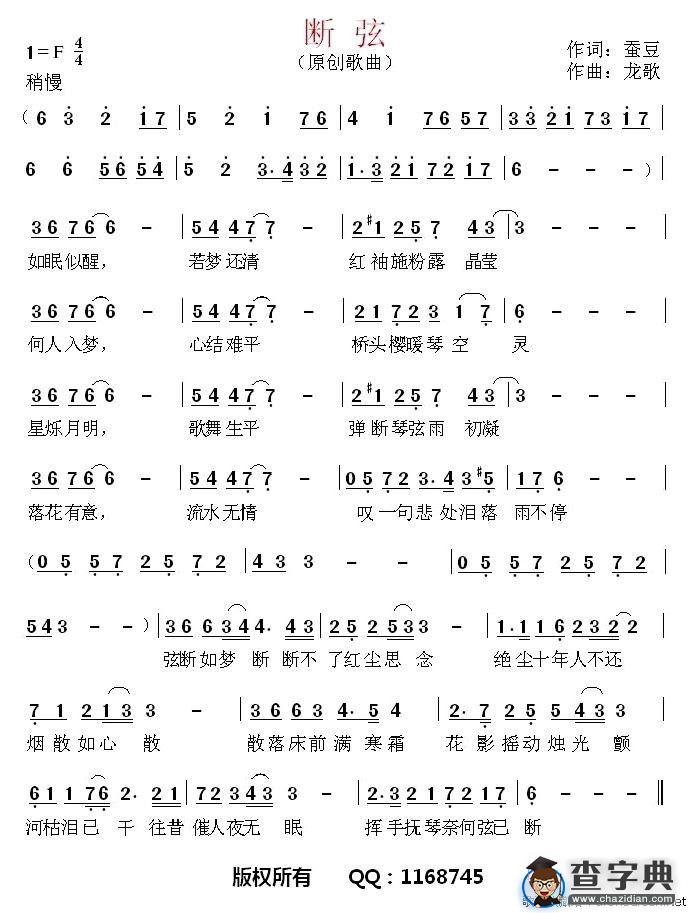 断 弦
1=F 4/4 （原创歌曲） 作词：蚕豆
稍慢 作曲：龙歌
（6 3 2 1 7 | 5 2 1 7 6 | 4 1 7 6 5 7 | 3 3 2 1 7 3 1 7 |
6 6 5 6 5 4 | 5 2 3· 4 3 2 | 1· 3 2 1 7 2 1 7 | 6 - - ）|
3 6 7 6 6 - | 5 4 4 7 7 - | 2 #1 2 5 7 4 3 | 3 - - - |
如眠似醒， 若梦还清 红袖施粉露 晶莹
3 6 7 6 6 - | 5 4 4 7 7 - | 2 1 7 2 3 1 7 | 6 - - - |
何人入梦， 心结难平 桥头樱暖琴空 灵
3 6 7 6 6 - | 5 4 4 7 7 - | 2 #1 2 5 7 4 3 | 3 - - - |
星烁月明， 歌舞生平 弹断琴弦雨 初凝
3 6 7 6 6 - | 5 4 4 7 7 - | 0 5 7 2 3· 4 3 #5 | 1 7 6 - - |
落花有意， 流水无情 叹一句悲处泪落 雨不停
（0 5 5 7 2 5 7 2 | 4 3 3 - - | 0 5 5 7 2 5 7 2 |
5 4 3 - - ）| 3 6 6 3 4 4· 4 3 | 2 5 2 5 3 3 - | 1· 1 1 6 2 3 2 2 |
弦断如梦 断 断不 了红尘思 念 绝尘十年人不还
7 1 2 1 3 3 - | 3 6 6 3 4· 5 4 | 2· 7 2 5 4 3 3 |
烟散如心 散 散落床前满 寒霜 花 影摇动烛光 颤
6 1 1 7 6 2· 2 1 | 7 2 3 4 3 3 - | 2· 3 2 1 7 2 1 7 | 6 - - ‖
河枯泪已 干 往昔 催人夜无 眠 挥手抚琴奈何弦已 断
版权所有 QQ：1168745
查字典
www.chazidian.com